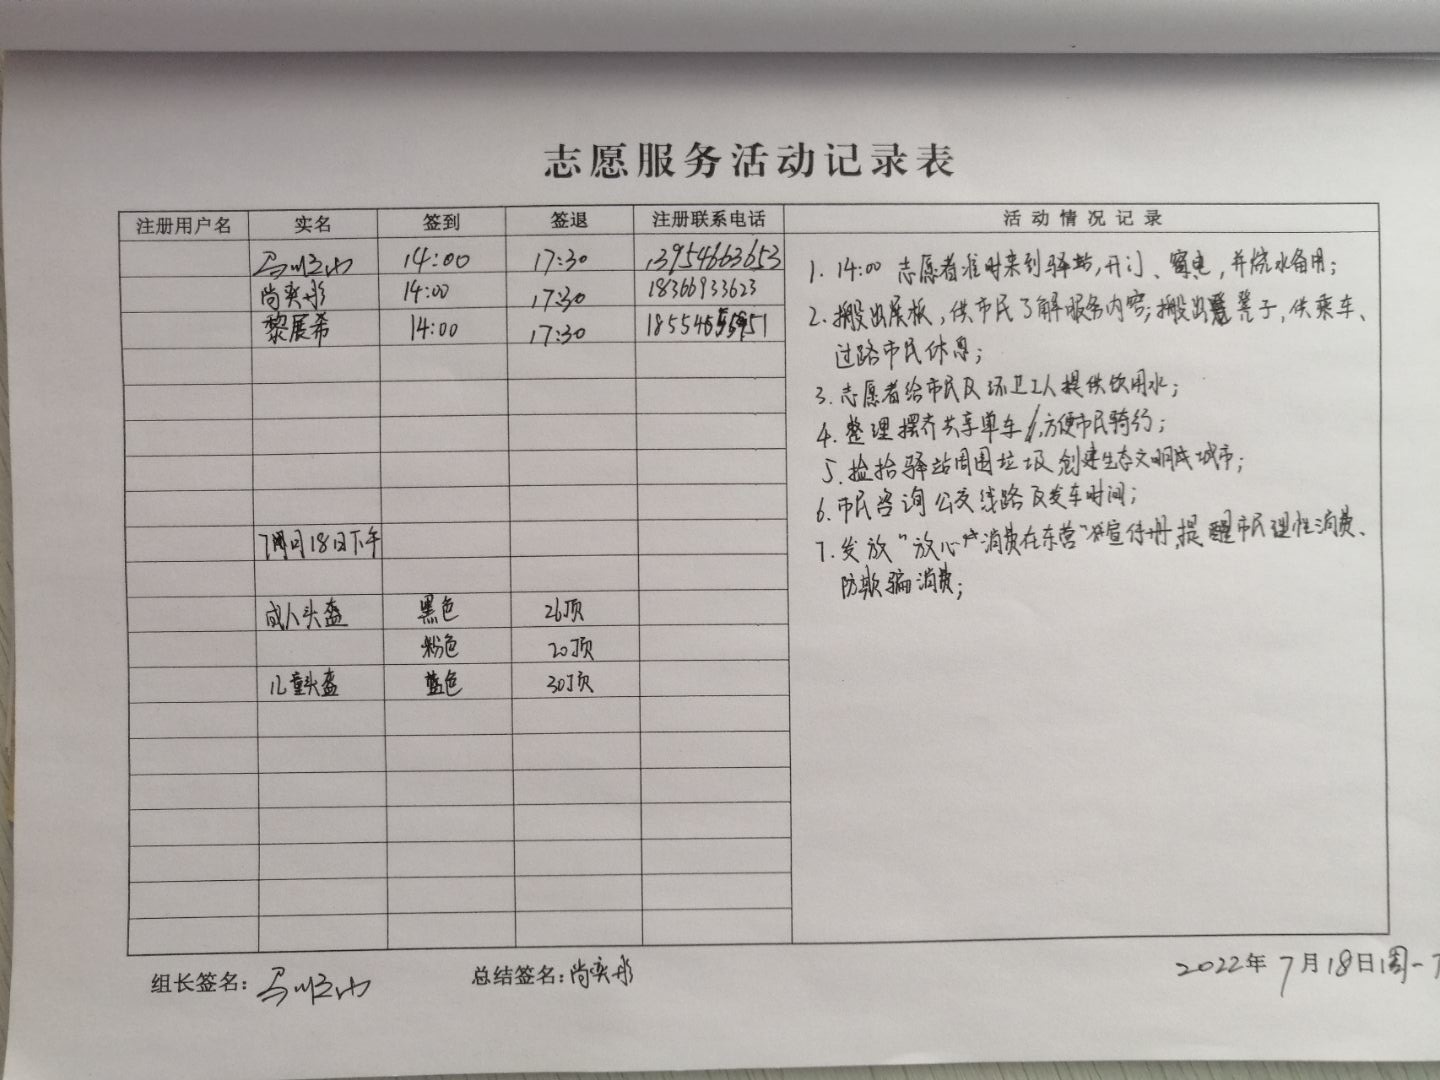 志愿服务活动记录表
注册用户名 实名 签到 签退 注册联系电话 活动情况记录
14:00 17:30 13954663653
尚奕彤 14:00 17:30 18366933623
黎展希 14:00 17:30
7月18日下午
成人头盔 黑色 26顶
粉色 20顶
儿童头盔 蓝色 30顶
1. 14:00 志愿者准时来到驿站,开门、窗、电,并烧水备用;
2. 搬出展板,供市民了解服务内容;搬出凳子,供乘车、
过路市民休息;
3. 志愿者给市民及环卫工人提供饮用水;
4. 整理摆齐共享单车,方便市民骑行;
5. 捡拾驿站周围垃圾 创建生态文明城市;
6. 市民咨询公交线路及发车时间;
7. 发放“放心消费在东营”宣传册,提醒市民理性消费、
防欺骗消费;
组长签名: 总结签名:尚奕彤 2022年7月18日周一